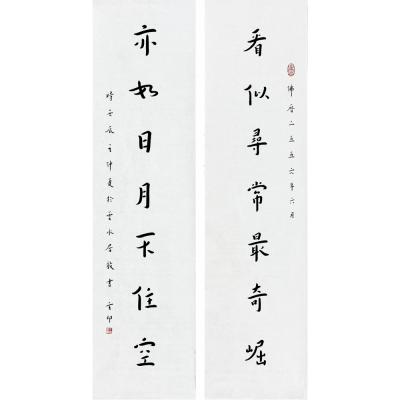 佛曆二五五六年六月
看似尋常最奇崛
亦如日月不住空
時壬辰之仲夏於雲水居敬書